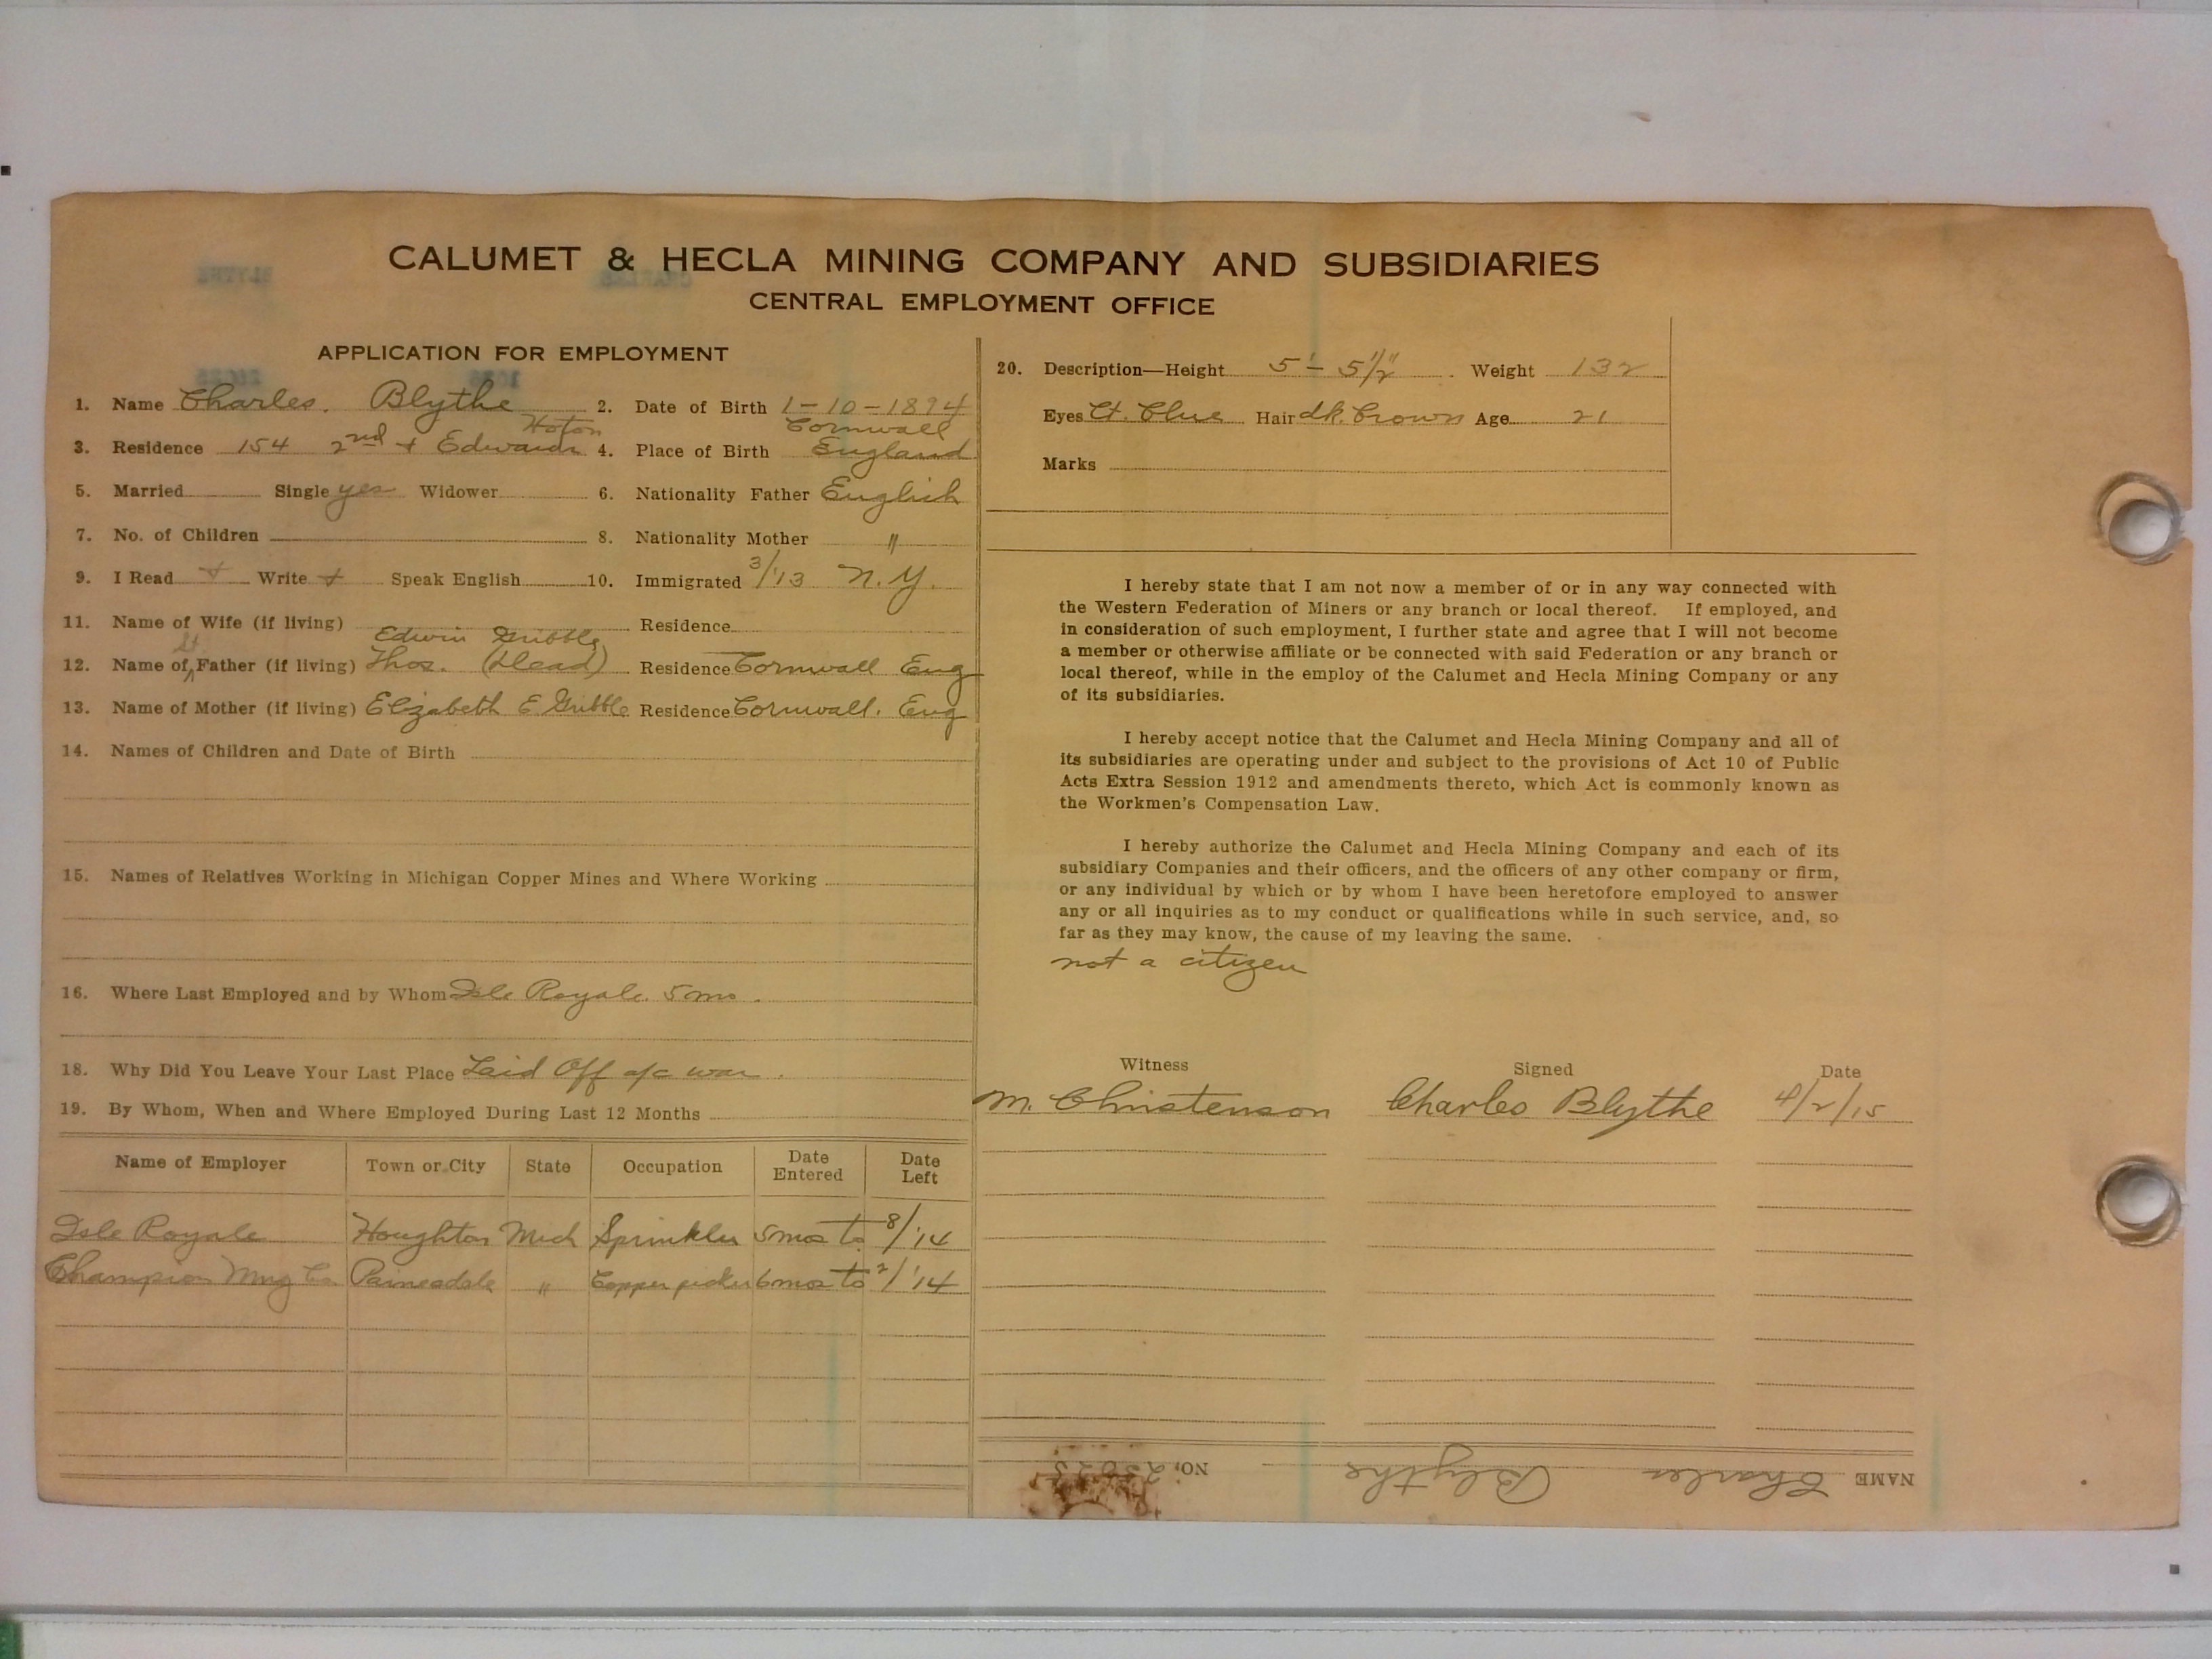 CALUMET & HECLA MINING COMPANY AND SUBSIDIARIES
CENTRAL EMPLOYMENT OFFICE
APPLICATION FOR EMPLOYMENT
1. Name Charles. Blythe 2. Date of Birth 1-10-1894
Hoton Cornwall
3. Residence 154 2nd + Edwards 4. Place of Birth England
5. Married Single yes Widower 6. Nationality Father English
7. No. of Children 8. Nationality Mother "
9. I Read + Write + Speak English 10. Immigrated 3/13 N.Y.
11. Name of Wife (if living) Residence
St Edwin Gribble
12. Name of Father (if living) Thos. (Dead) Residence Cornwall Eng
13. Name of Mother (if living) Elizabeth E Gribble Residence Cornwall. Eng
14. Names of Children and Date of Birth
15. Names of Relatives Working in Michigan Copper Mines and Where Working
16. Where Last Employed and by Whom Isle Royale. 5 mo.
18. Why Did You Leave Your Last Place Laid Off a/c war.
19. By Whom, When and Where Employed During Last 12 Months
Name of Employer Town or City State Occupation Date Entered Date Left
Isle Royale Houghton Mich Sprinkler 5mos to 8/'14
Champion Mng Co. Painesdale " Copper picker 6mos to 2/'14
20. Description—Height 5' - 5 1/2" Weight 132
Eyes Lt. Blue Hair dk. Brown Age 21
Marks
I hereby state that I am not now a member of or in any way connected with
the Western Federation of Miners or any branch or local thereof. If employed, and
in consideration of such employment, I further state and agree that I will not become
a member or otherwise affiliate or be connected with said Federation or any branch or
local thereof, while in the employ of the Calumet and Hecla Mining Company or any
of its subsidiaries.
I hereby accept notice that the Calumet and Hecla Mining Company and all of
its subsidiaries are operating under and subject to the provisions of Act 10 of Public
Acts Extra Session 1912 and amendments thereto, which Act is commonly known as
the Workmen's Compensation Law.
I hereby authorize the Calumet and Hecla Mining Company and each of its
subsidiary Companies and their officers, and the officers of any other company or firm,
or any individual by which or by whom I have been heretofore employed to answer
any or all inquiries as to my conduct or qualifications while in such service, and, so
far as they may know, the cause of my leaving the same.
not a citizen
Witness Signed Date
M. Christenson Charles Blythe 4/2/15
NAME Charles Blythe NO.